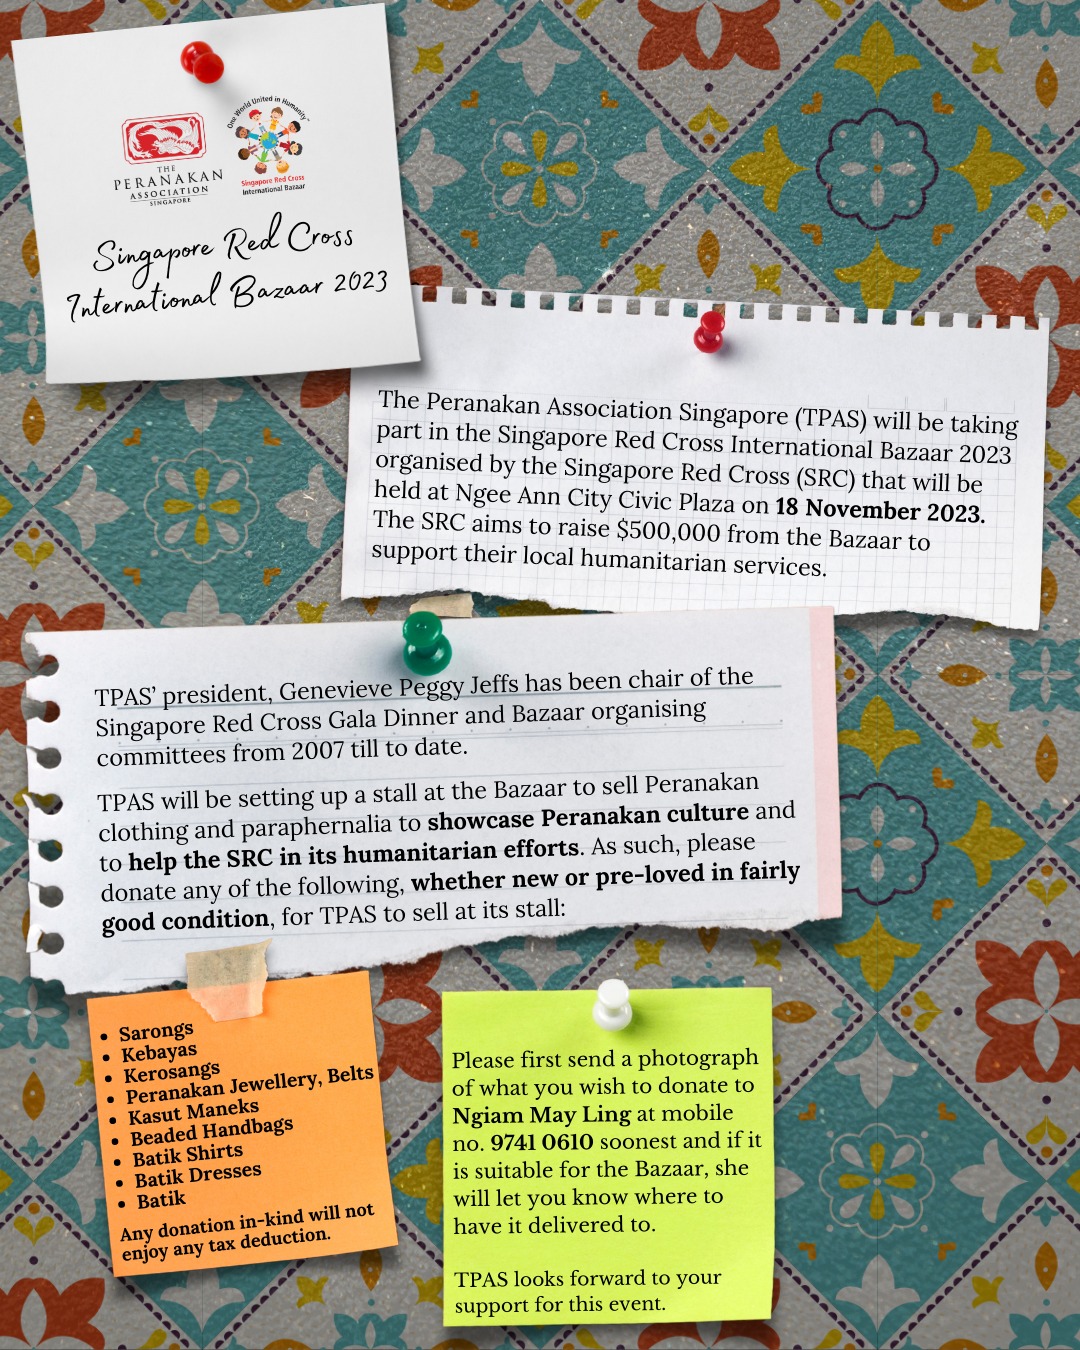 THE
PERANAKAN
ASSOCIATION
SINGAPORE
One World United in Humanity™
Singapore Red Cross
International Bazaar
Singapore Red Cross
International Bazaar 2023
The Peranakan Association Singapore (TPAS) will be taking
part in the Singapore Red Cross International Bazaar 2023
organised by the Singapore Red Cross (SRC) that will be
held at Ngee Ann City Civic Plaza on 18 November 2023.
The SRC aims to raise $500,000 from the Bazaar to
support their local humanitarian services.
TPAS’ president, Genevieve Peggy Jeffs has been chair of the
Singapore Red Cross Gala Dinner and Bazaar organising
committees from 2007 till to date.
TPAS will be setting up a stall at the Bazaar to sell Peranakan
clothing and paraphernalia to showcase Peranakan culture and
to help the SRC in its humanitarian efforts. As such, please
donate any of the following, whether new or pre-loved in fairly
good condition, for TPAS to sell at its stall:
• Sarongs
• Kebayas
• Kerosangs
• Peranakan Jewellery, Belts
• Kasut Maneks
• Beaded Handbags
• Batik Shirts
• Batik Dresses
• Batik
Any donation in-kind will not
enjoy any tax deduction.
Please first send a photograph
of what you wish to donate to
Ngiam May Ling at mobile
no. 9741 0610 soonest and if it
is suitable for the Bazaar, she
will let you know where to
have it delivered to.
TPAS looks forward to your
support for this event.